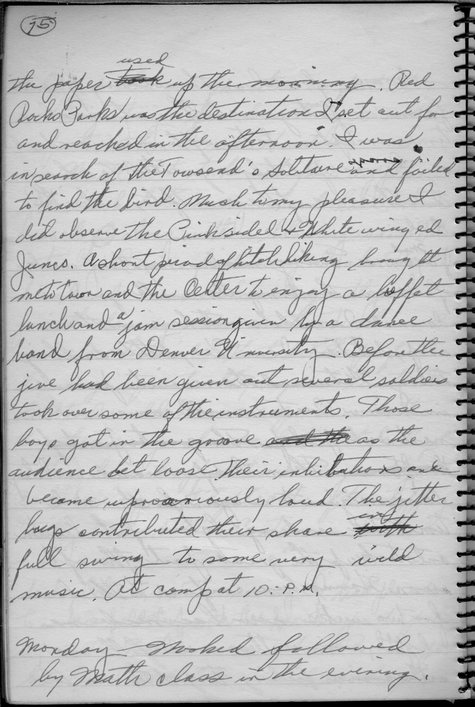 75
the paper used up the morning. Red
Rocks Parks was the destination I set out for
and reached in the afternoon. I was
in search of the Towsend's Solitaire and failed
to find the bird. Much to my pleasure I
did observe the Pink sided & White winged
Junco. A short period of hitch hiking brought
me to town and the Center to enjoy a buffet
lunch and a jam session given by a dance
band from Denver University. Before the
jive had been given out several soldiers
took over some of the instruments. Those
boys got in the groove as the
audience let loose their inhibitions and
became uproariously loud. The jitter
bugs contributed their share in
full swing to some very wild
music. At camp at 10:P.M.
Monday Worked followed
by Math class in the evening.